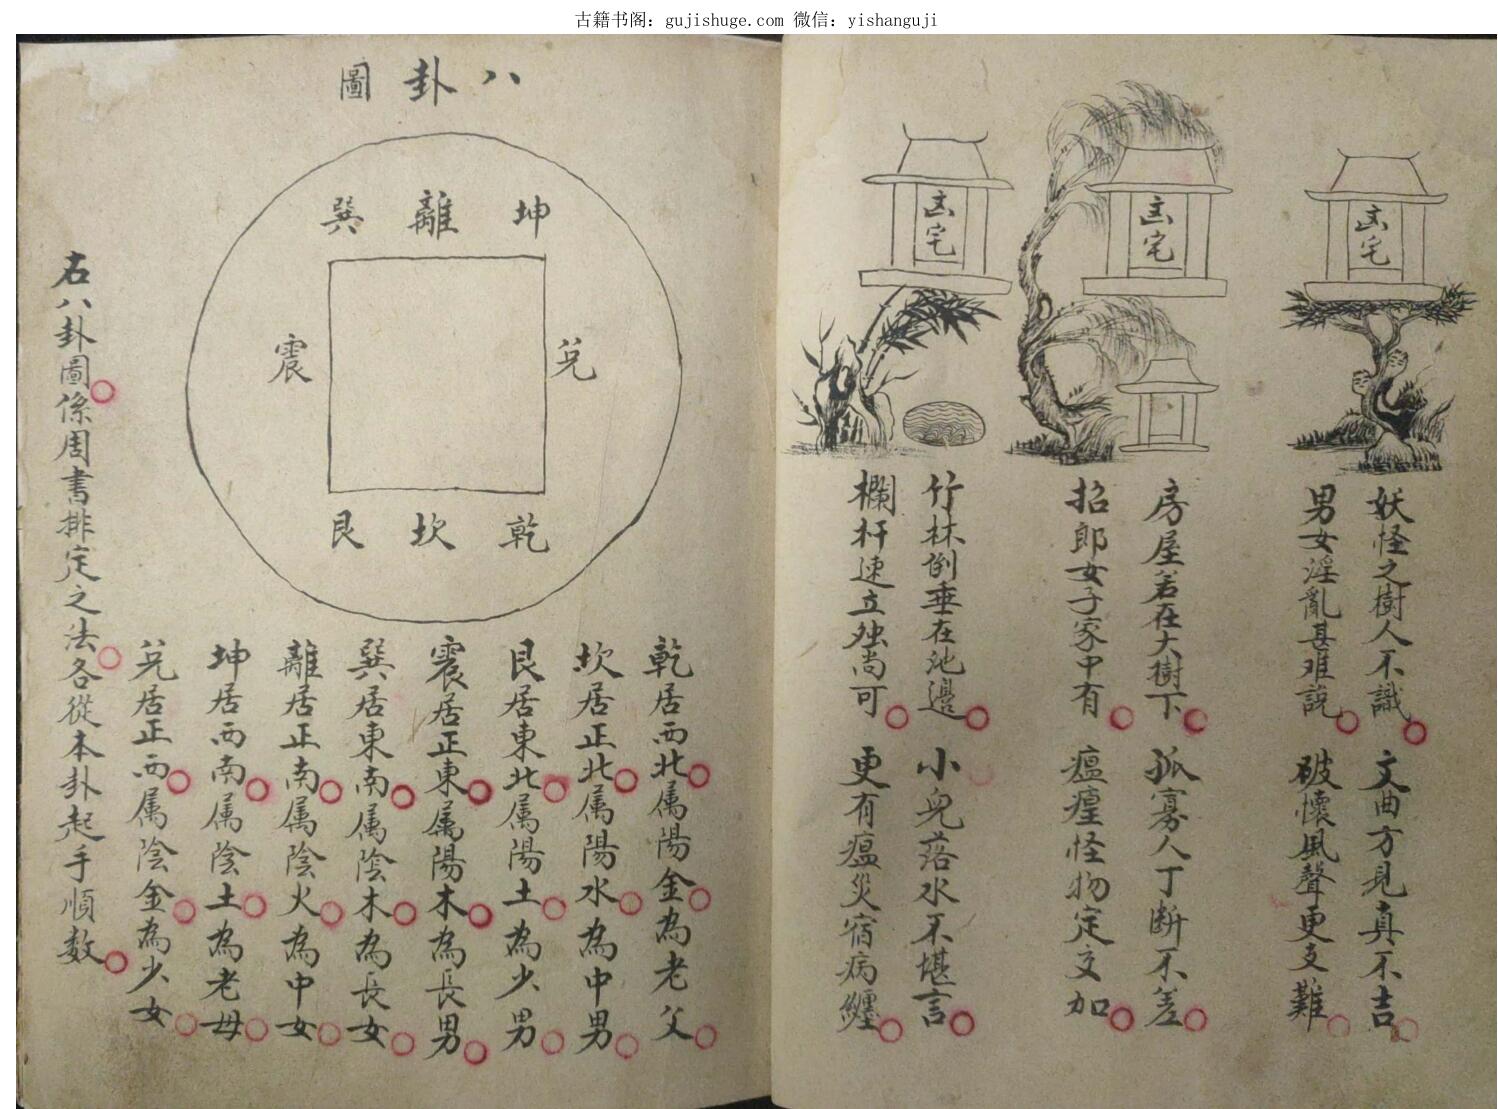 古籍书阁：gujishuge.com 微信：yishanguji
凶宅
凶宅
凶宅
妖怪之樹人不識 文曲方見真不吉
男女淫亂甚难說 破懷風聲更支難
房屋若在大樹下 孤寡人丁断不差
招郎女子家中有 瘟㾮怪物定交加
竹林倒垂在池邊 小兒落水不堪言
欄杆速立独尚可 更有瘟災宿病纏
八卦圖
巽 離 坤
震 兌
艮 坎 乾
乾居西北属陽金為老父
坎居正北属陽水為中男
艮居東北属陽土為少男
震居正東属陽木為長男
巽居東南属陰木為長女
離居正南属陰火為中女
坤居西南属陰土為老母
兌居正西属陰金為少女
右八卦圖係周書排定之法各從本卦起手順数